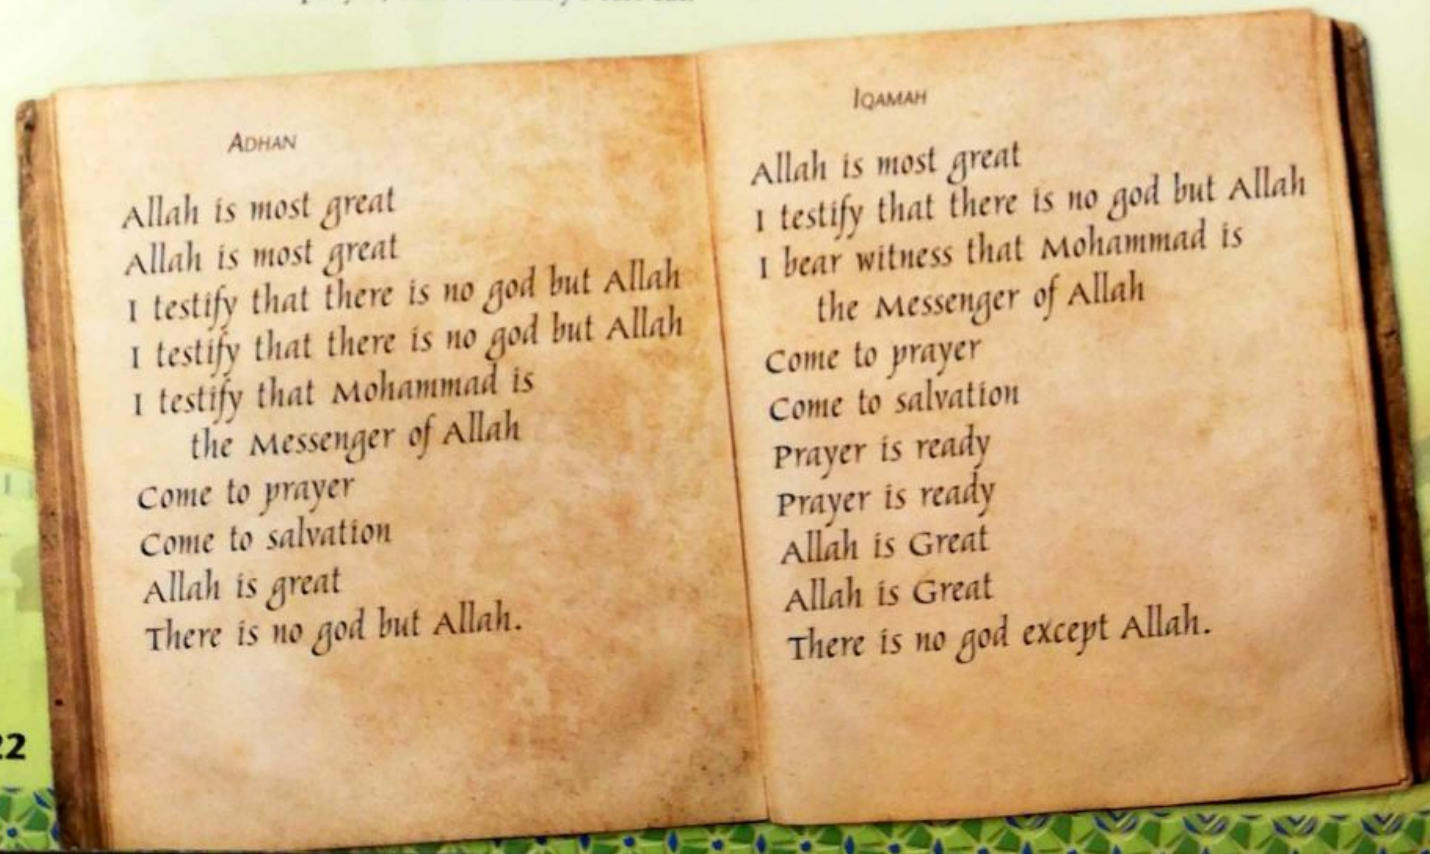 ADHAN
Allah is most great
Allah is most great
I testify that there is no god but Allah
I testify that there is no god but Allah
I testify that Mohammad is
the Messenger of Allah
Come to prayer
Come to salvation
Allah is great
There is no god but Allah.
IQAMAH
Allah is most great
I testify that there is no god but Allah
I bear witness that Mohammad is
the Messenger of Allah
Come to prayer
Come to salvation
Prayer is ready
Prayer is ready
Allah is Great
Allah is Great
There is no god except Allah.
22